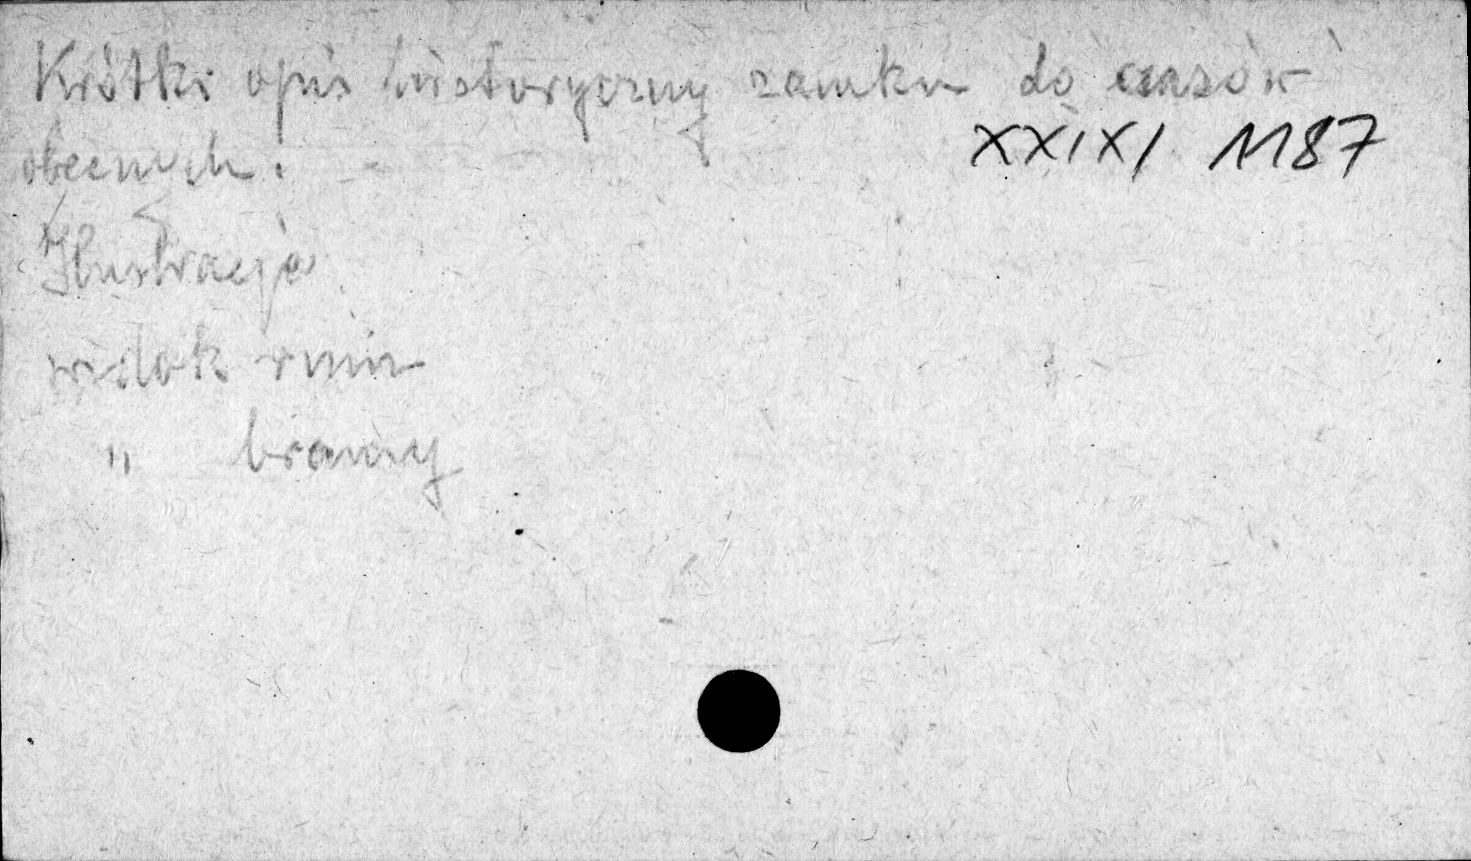 Krótki opis historyczny zamku do czasów
obecnych.
XXIX/ 1187
Ilustracja
widok ruin
" bramy